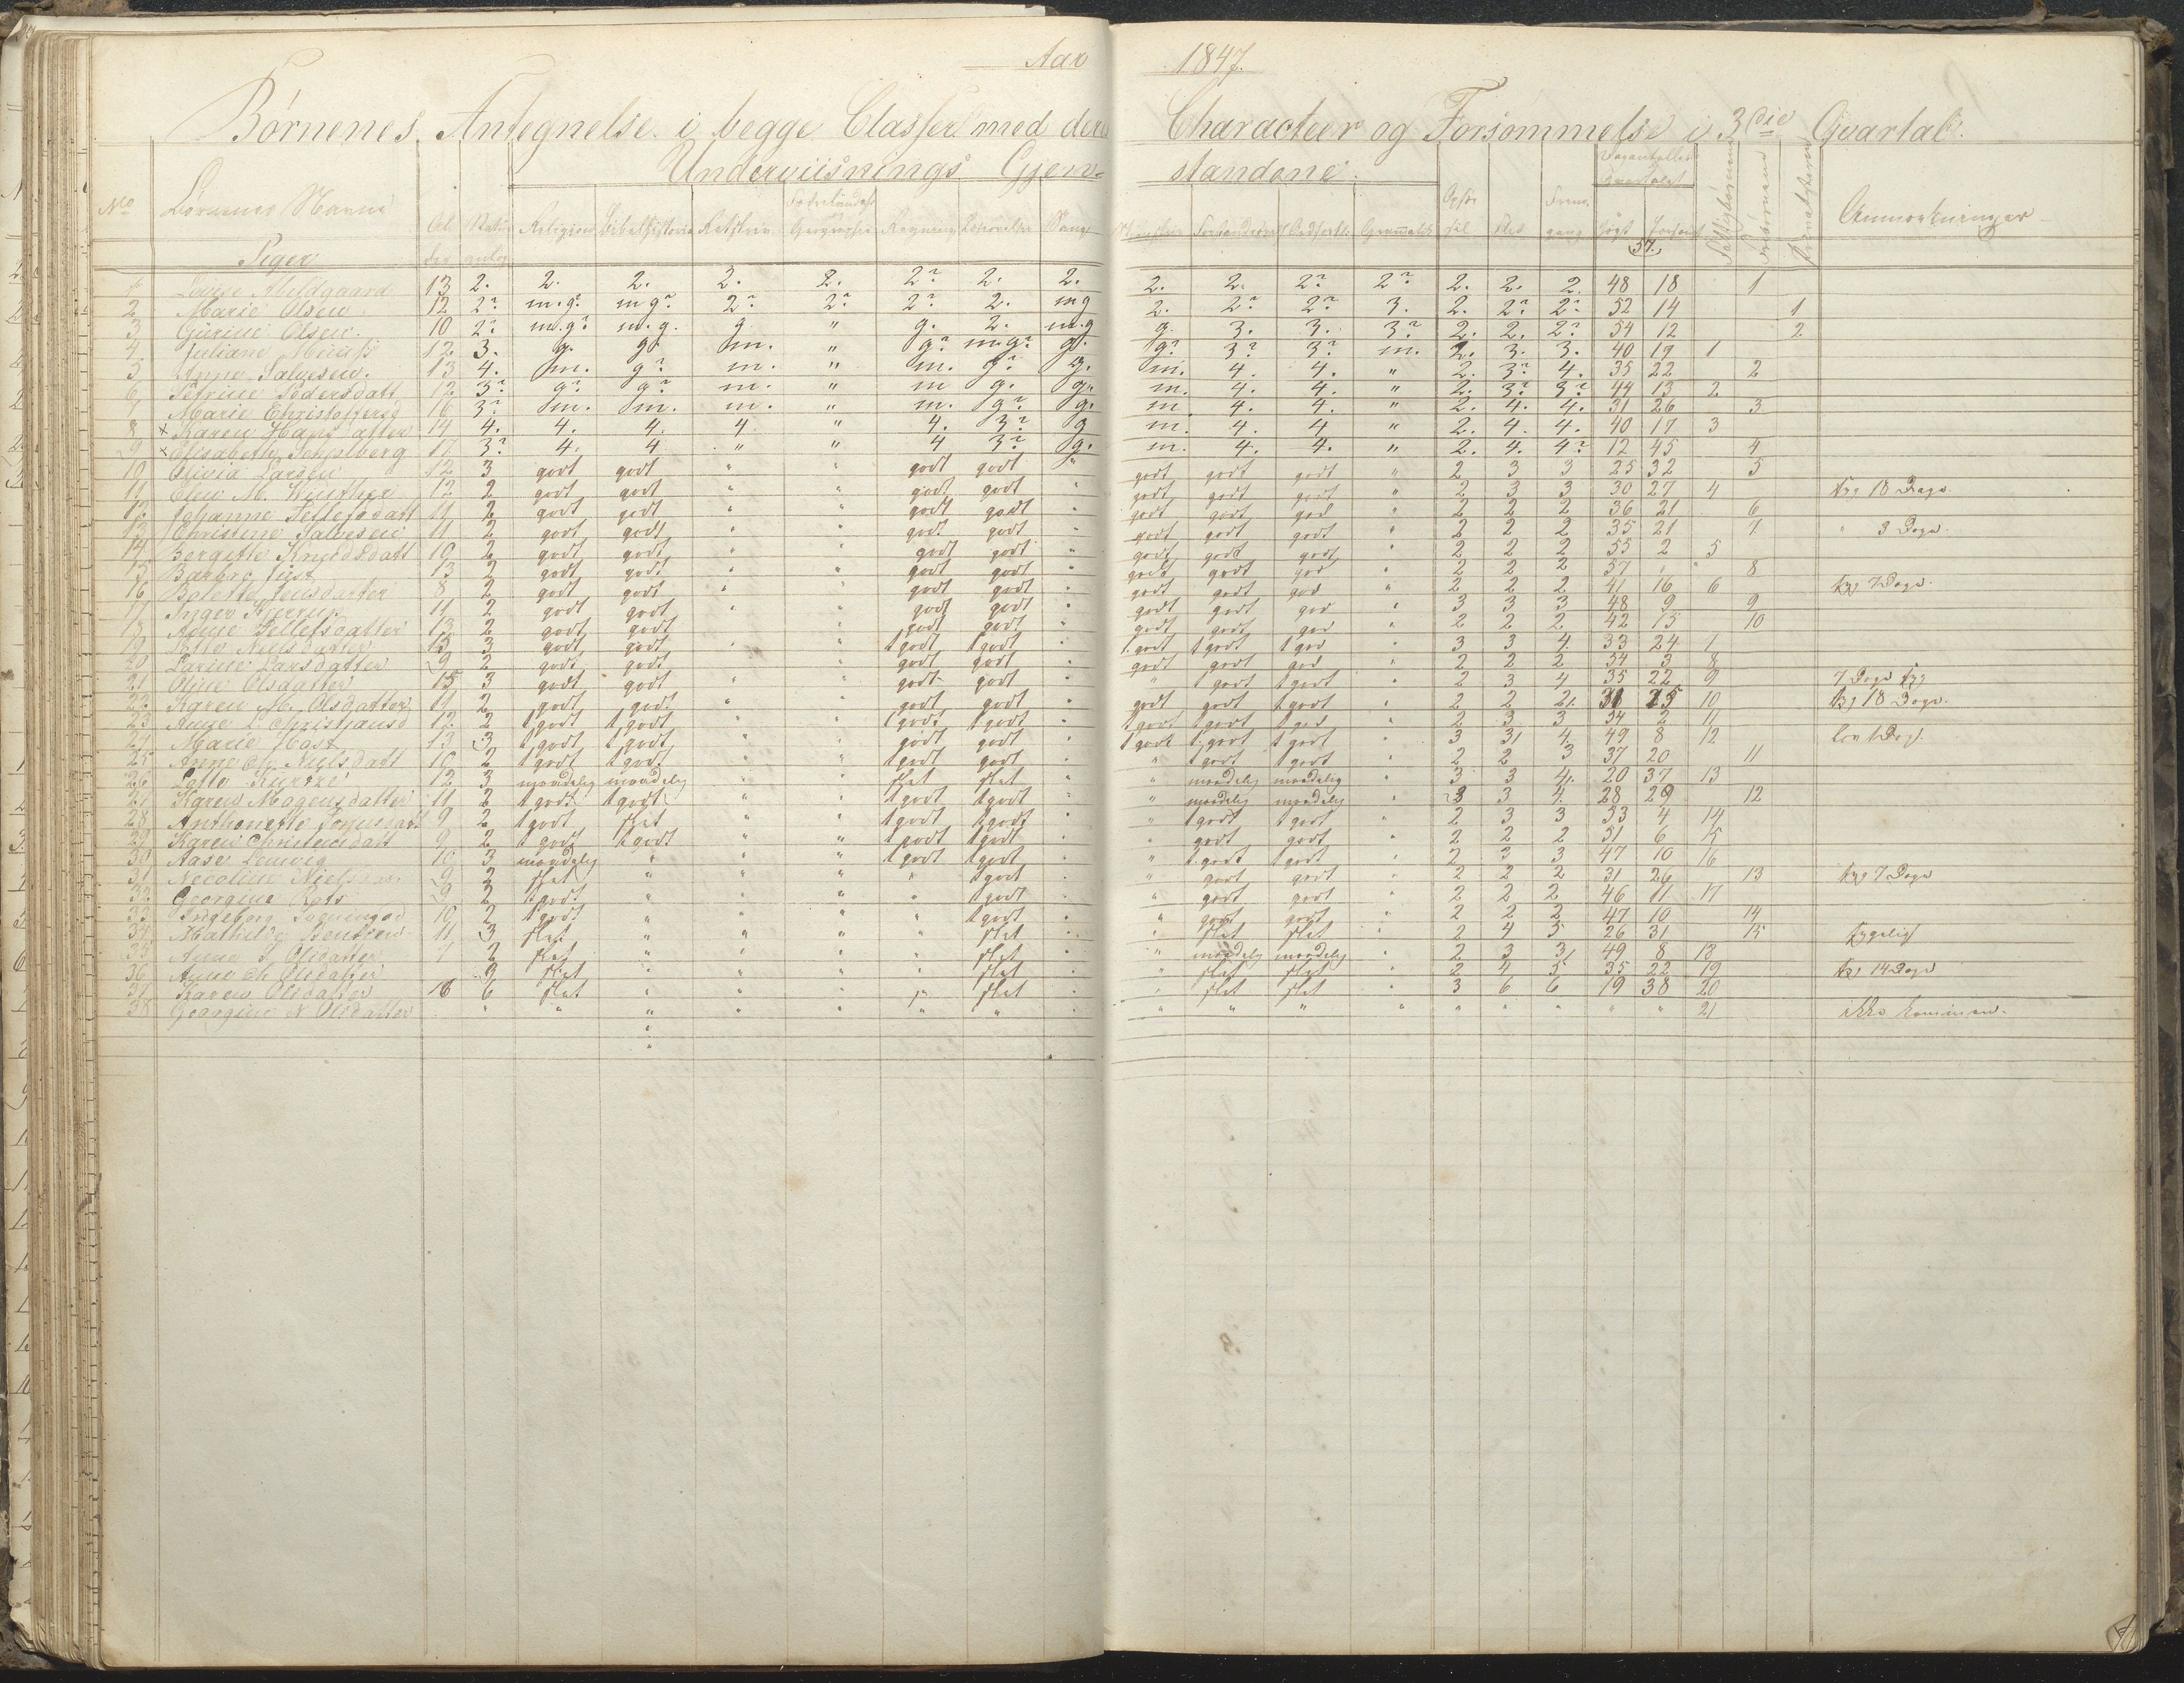 Aar 1847.
Børnenes Antegnelse i begge Classer med deres Characteer og Forsømmelse i 3die Qvartal.
Underviisnings Gjenstandene.
No Børnenes Navne Alder Religion Bibelhistorie Retskriv. Regning Sang Grammatik Flid Fremgang søgt forsømt Anmærkninger
57.
Piger
1 Lovise Abildgaard 13 2. 2. 2. 2. 2. 2? 2. 2. 2. 2. 2? 2? 2. 2. 2. 48 18 1
2 Marie Olsen 12 2? m.g? m g? 2? 2? 2? 2. m g 2. 2? 2? 3. 2. 2? 2? 52 14 1
3 Gurine Olsen. 10 2? m.g? m.g. g. " g. 2. m.g g. 3. 3. 3? 2. 2. 2? 54 12 2
4 Juliane 12 3. g. g. m. " g? m.g? g. g? 3? 3? m. 2. 3. 3. 40 19 1
5 Anne Salvesen. 13 4. m. g? m. " m. g? g. m. 4. 4. " 2. 3? 4. 35 22 2
6 Petrine Pedersdatt 12 3? g? g? m. " m g. g. m. 4. 4. " 2. 3? 3? 44 13 2
7 Marie Christoffersd 16 3? m. m. m. " m. g? g. m 4. 4. " 2. 4. 4. 31 26 3
8 x Karen Hansdatter 14 4. 4. 4. 4 " 4. 3? g m. 4. 4 " 2. 4. 4. 40 17 3
9 x Elisabeth 17 3? 4. 4 " " 4 3? g. m. 4. 4. " 2. 4. 4? 12 45 4
10 Olivia Larsen 12 3 godt godt " " godt godt " godt godt godt " 2 3 3 25 32 5
11 Elen M. Winther 12 2 godt godt " " godt godt " godt godt godt " 2 3 3 30 27 4 syg 18 Dage.
12 Johanne Tellefsdatt 11 2 godt godt " " godt godt " godt godt god " 2 2 2 36 21 6
13 Christine Salvesen 11 2 godt godt " " godt godt " godt godt godt " 2 2 2 35 21 7 " 3 Dage.
14 Bergitte Knudsdatt 10 2 godt godt " " godt godt " godt godt godt " 2 2 2 55 2 5
15 Barbro Just 13 2 godt godt " " godt godt " godt godt god " 2 2 2 57 " 8
16 Bolette Jensdatter 8 2 godt godt " " godt godt " godt godt god " 2 2 2 41 16 6 syg 7 Dage.
17 Inger 11 2 godt godt " " godt godt " godt godt god " 3 3 3 48 9 9
18 Anne Tellefsdatter 13 2 godt godt " godt godt " godt godt god " 2 2 2 42 15 10
19 Lotte Nielsdatter 15 3 godt godt " " t godt t godt " t godt t godt t god " 3 3 4. 33 24 7
20 Larine Larsdatter 9 2 godt godt " godt godt " godt godt god " 2 2 2 54 3 8
21 Oline Olsdatter 15 3 godt godt " " godt godt " " t godt t godt " 2 3 4 35 22 9 7 Dage syg
22 Karen M. Olsdatter 11 2 godt godt " " godt godt " godt godt t godt " 2 2 2 10 syg 18 Dage.
23 Anne L. Christjansd 12 2 t godt t godt " " t godt t godt " t godt t godt t god " 2 3 3 54 2 11
24 Marie 13 3 t godt t godt " " godt godt " t godt t. godt t godt " 3 3 4 49 8 12
25 Anne M. Nielsdatt 10 2 t godt t godt " " t godt godt " " t godt t godt " 2 2 3 37 20 11
26 Lotte 12 3 maadelig maadelig " " slet slet " " maadelig maadelig " 3 3 4. 20 37 13
27 Karen Mogensdatter 11 2 t godt t godt " " t godt t godt " " maadelig maadelig " 3 3 4. 28 29 12
28 Anthonette 9 2 t godt slet " " t godt t godt " " t godt t godt " 2 3 3 53 4 14
29 Karen Christensdatt 9 2 t godt t godt " " t godt t godt " " godt godt " 2 2 2 51 6 15
30 Aase 10 3 maadelig " " " t godt t godt " " t. godt t godt " 2 3 3 47 10 16
31 Nicoline Nielsen. 9 2 slet " " " " t godt " " godt godt " 2 2 2 31 26 13 syg 7 Dage
32 Georgine 9 2 t godt " " " " t godt " " godt godt " 2 2 2 46 11 17
33 Ingeborg 10 2 t godt " " " " t godt " " godt godt " 2 2 2 47 10 14
34 Mathilde Bentsen 11 3 slet " " " " slet " " slet slet " 2 4 5 26 31 15 sygelig
35 Anne Olsdatter 7 2 slet " " " " slet " " maadelig maadelig " 2 3 3 49 8 18
36 Anne M. Olsdatter 9 slet " " " " slet " " slet slet " 2 4 5 35 22 19 syg 14 Dage
37 Karen Olsdatter 16 6 slet " " " " slet " " slet slet " 3 6 6 19 38 20
38 Georgine N. Olsdatter " " " " " " " " " " " " " " " " " 21 ikke kommen.